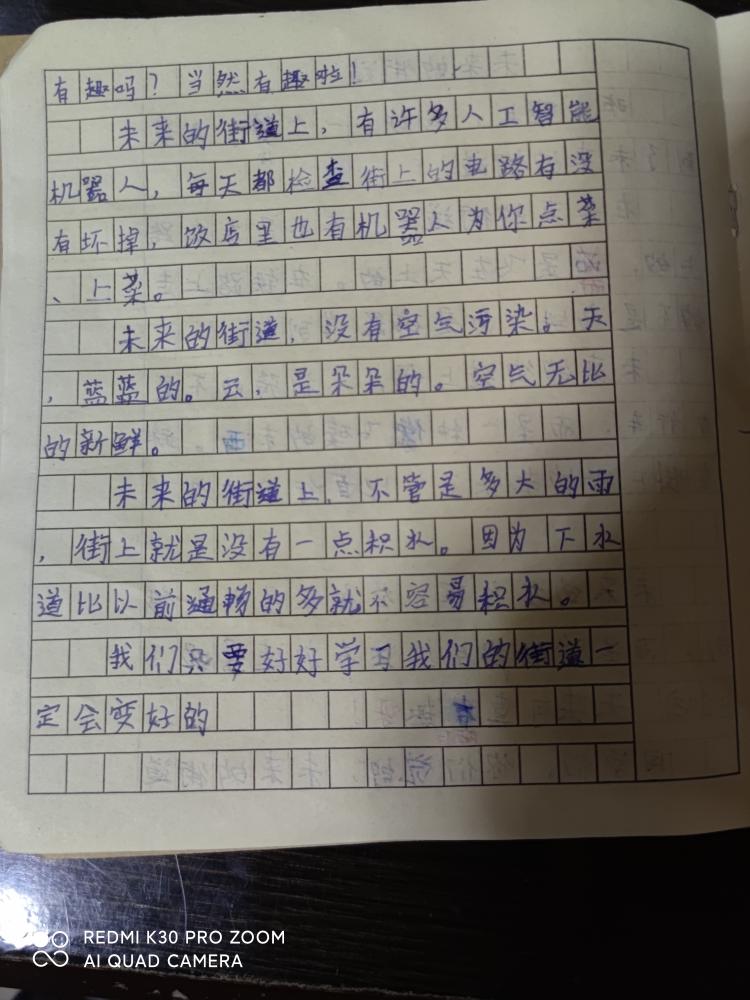 有趣吗?当然有趣啦!
未来的街道上,有许多人工智能
机器人,每天都检查街上的电路有没
有坏掉,饭店里也有机器人为你点菜
、上菜。
未来的街道,没有空气污染。天
,蓝蓝的。云,是朵朵的。空气无比
的新鲜。
未来的街道上,不管是多大的雨
,街上就是没有一点积水。因为下水
道比以前通畅的多就不容易积水。
我们只要好好学习我们的街道一
定会变好的
REDMI K30 PRO ZOOM
AI QUAD CAMERA